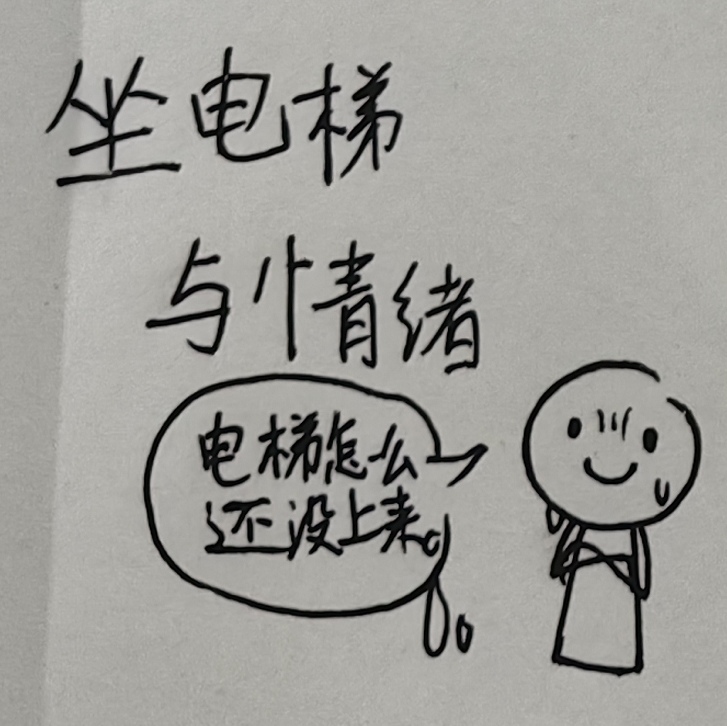 坐电梯
与情绪
电梯怎么
还没上来。